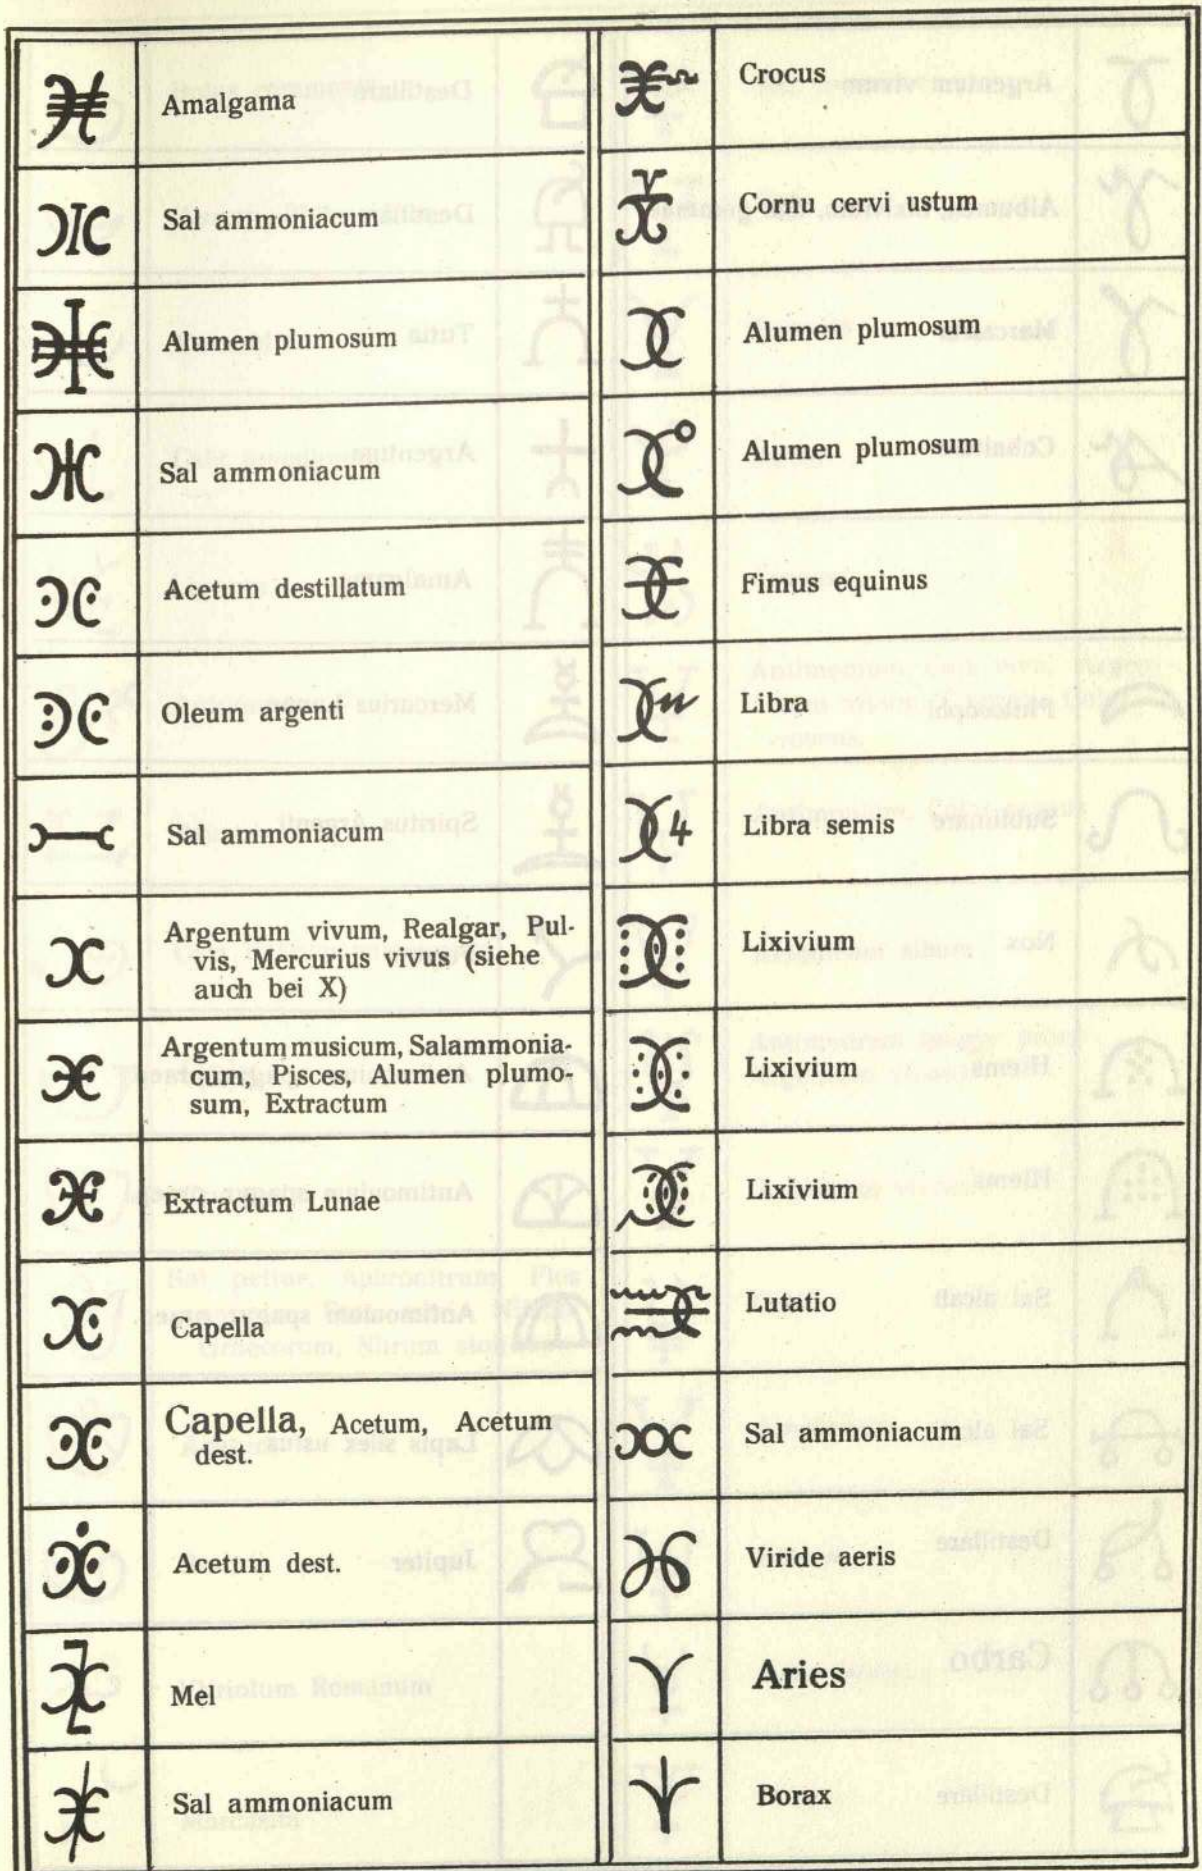 Amalgama
Sal ammoniacum
Alumen plumosum
Sal ammoniacum
Acetum destillatum
Oleum argenti
Sal ammoniacum
Argentum vivum, Realgar, Pul-
vis, Mercurius vivus (siehe
auch bei X)
Argentum musicum, Salammonia-
cum, Pisces, Alumen plumo-
sum, Extractum
Extractum Lunae
Capella
Capella, Acetum, Acetum
dest.
Acetum dest.
Mel
Sal ammoniacum
Crocus
Cornu cervi ustum
Alumen plumosum
Alumen plumosum
Fimus equinus
Libra
Libra semis
Lixivium
Lixivium
Lixivium
Lutatio
Sal ammoniacum
Viride aeris
Aries
Borax